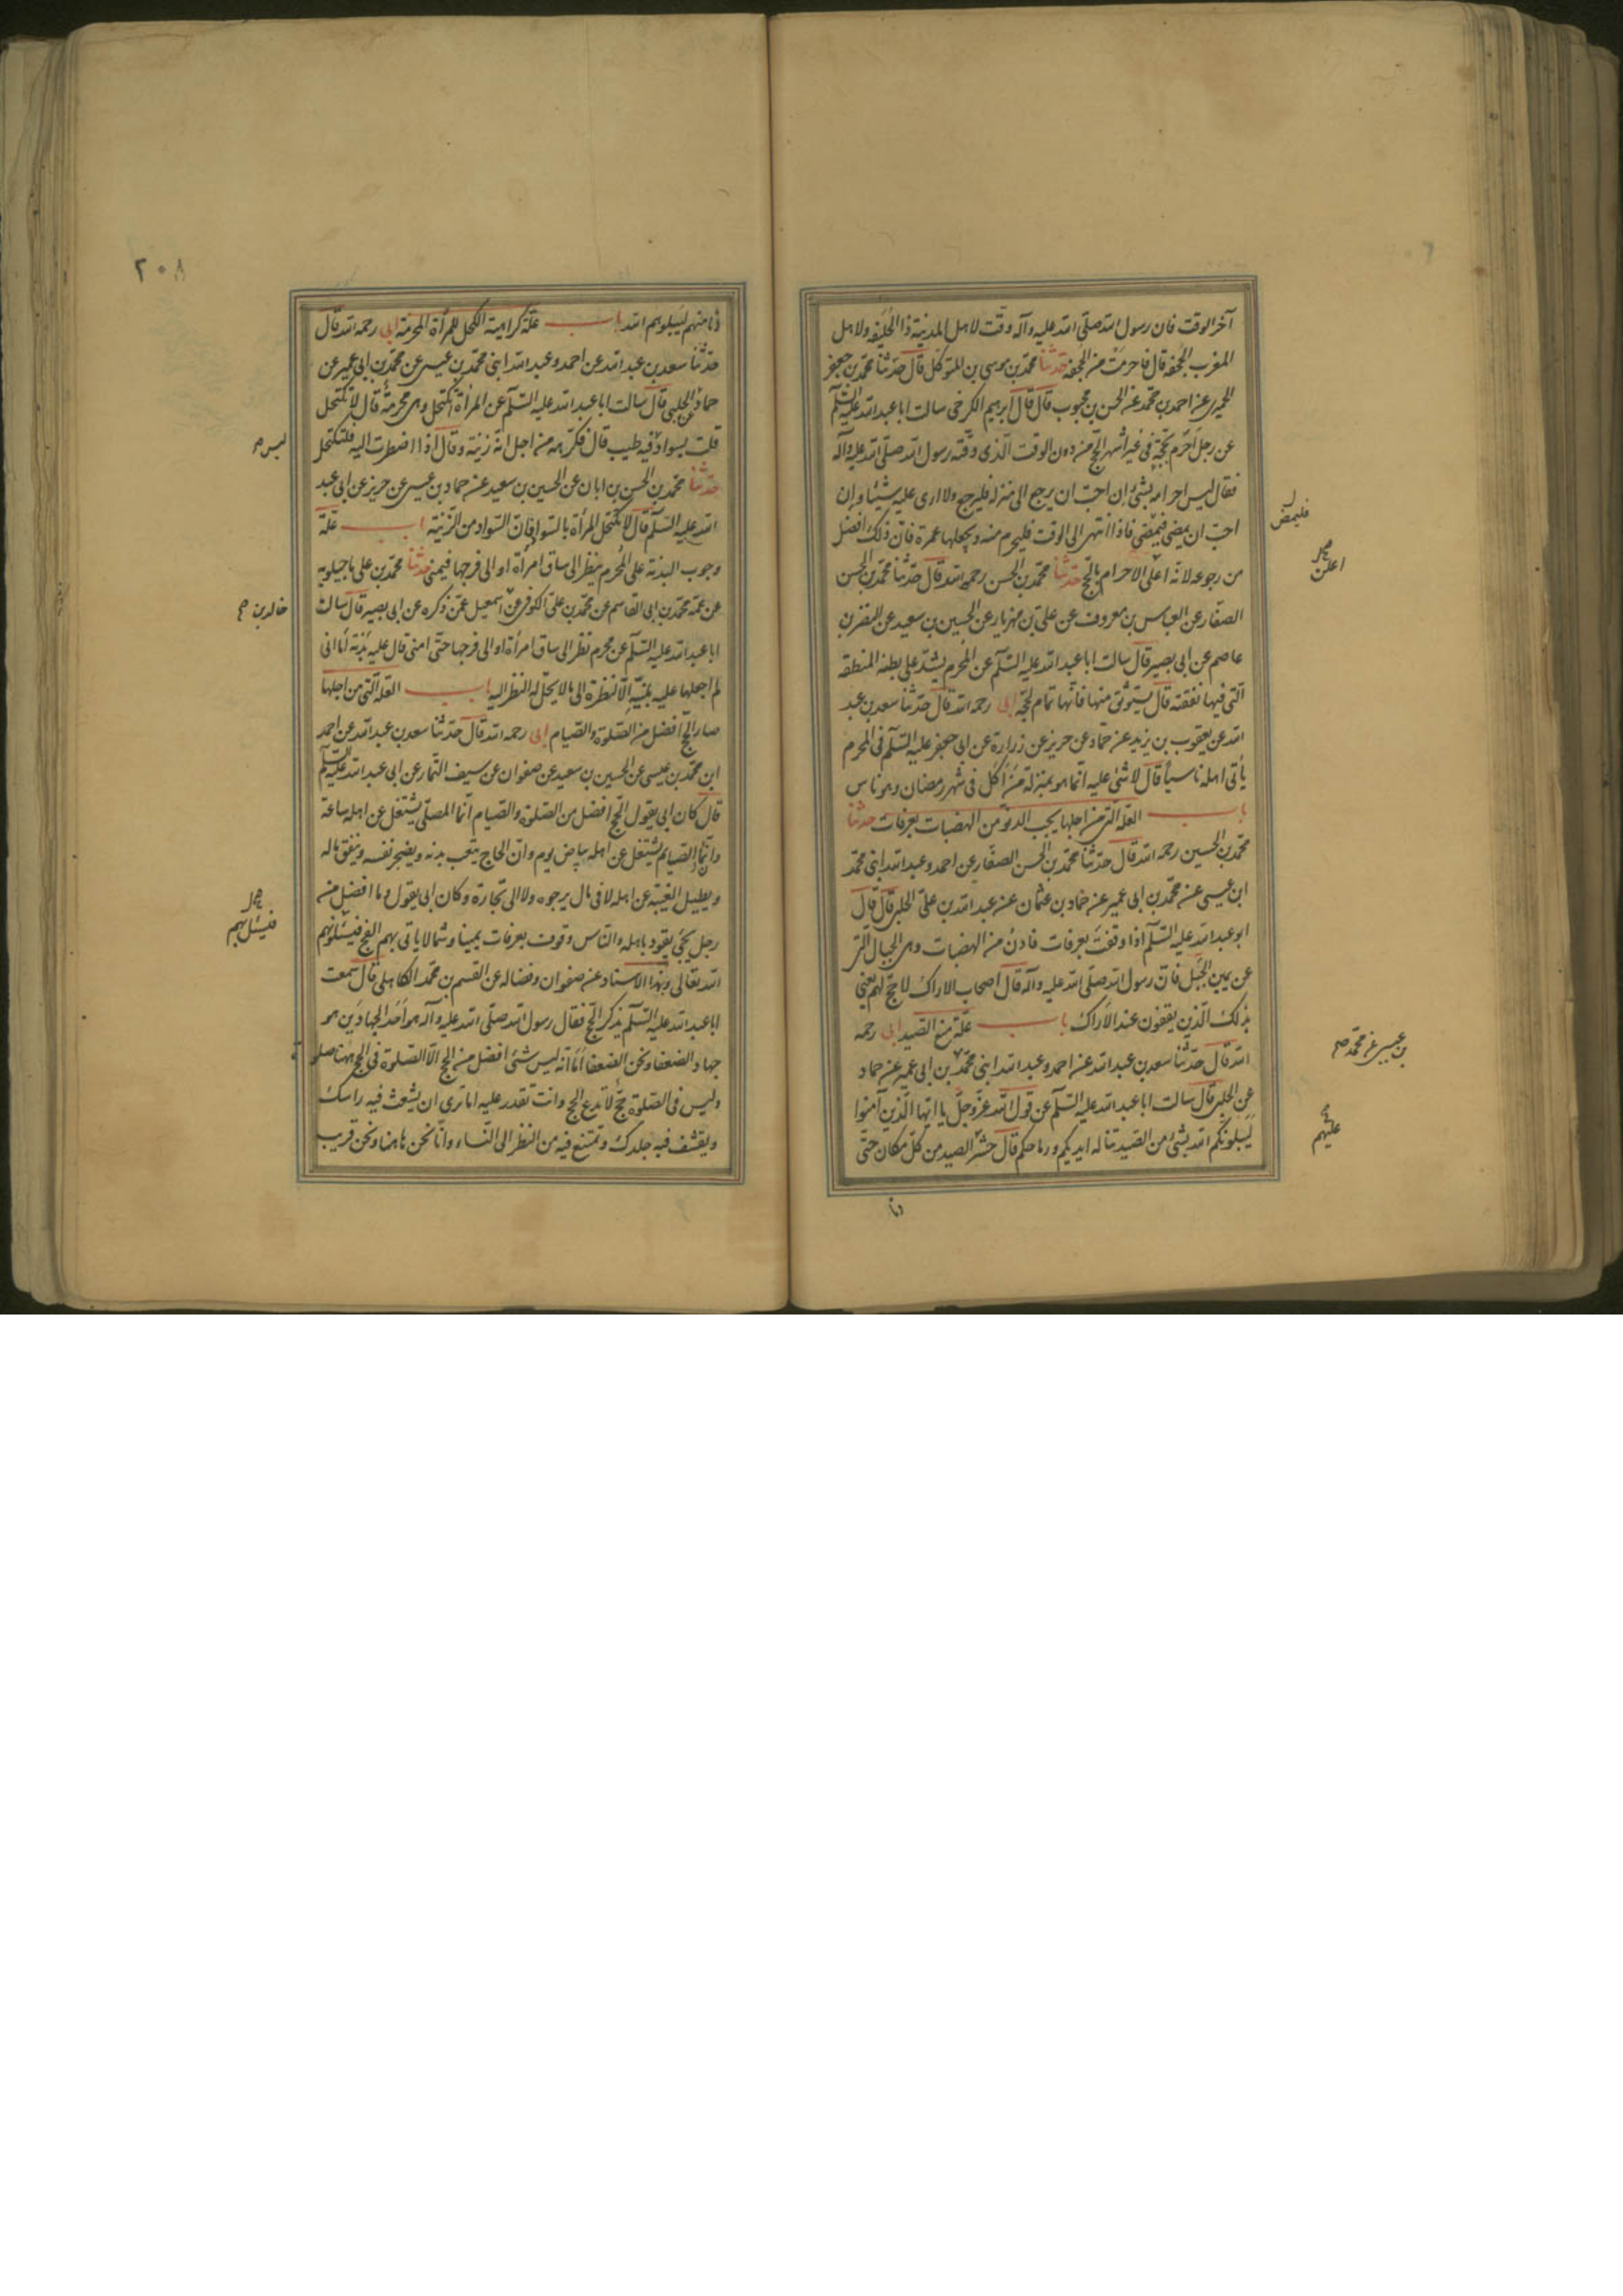 آخر الوقت فان رسول الله صلى الله عليه وآله وقت لاهل المدينة ذا الحليفة ولاهل
المغرب الجحفة قال فاحرمت من الجحفة حدثنا محمد بن موسى بن المتوكل قال حدثنا محمد بن جعفر
الحميري عن احمد بن محمد عن الحسن بن محبوب قال قال ابرهيم الكرخى سالت ابا عبد الله عليه السلم
عن رجل احرم بحجة فى غير اشهر الحج من دون الوقت الذى وقته رسول الله صلى الله عليه وآله
فقال ليس احرامه بشئ ان احب ان يرجع الى منزله فليرجع ولا ارى عليه شيئا وان
احب ان يمضى فيمضى فاذا انتهى الى الوقت فليحرم منه ويجعلها عمرة فان ذلك افضل
من رجوعه لانه اعلى الاحرام بالحج حدثنا محمد بن الحسن رحمه الله قال حدثنا محمد بن الحسن
الصفار عن العباس بن معروف عن على بن مهزيار عن الحسين بن سعيد عن النضر بن
عاصم عن ابى بصير قال سالت ابا عبد الله عليه السلم عن المحرم يشد على بطنه المنطقه
التى فيها نفقته قال يستوثق منها فانها تمام لحجه ابى رحمه الله قال حدثنا سعد بن عبد
الله عن يعقوب بن يزيد عن حماد عن حريز عن زرارة عن ابى جعفر عليه السلم فى المحرم
يأتى اهله ناسيا قال لا شئ عليه انما هو بمنزلة من أكل فى شهر رمضان وهو ناس
باب العلة التى من اجلها يجب الدنو من الهضبات بعرفات حدثنا
محمد بن الحسين رحمه الله قال حدثنا محمد بن الحسن الصفار عن احمد وعبد الله ابنى محمد
ابن عيسى عن محمد بن ابى عمير عن حماد بن عثمان عن عبد الله بن على الحلبى قال قال
ابو عبد الله عليه السلم اذا وقفت بعرفات فادن من الهضبات وهى الجبال التى
عن يمين الجبل فان رسول الله صلى الله عليه وآله قال اصحاب الاراك لا حج لهم يعنى
بذلك الذين يقفون عند الاراك باب علة منع الصيد ابى رحمه
الله قال حدثنا سعد بن عبد الله عن احمد وعبد الله ابنى محمد بن ابى عمير عن حماد
عن الحلبى قال سالت ابا عبد الله عليه السلم عن قول الله عز وجل يا ايها الذين آمنوا
ليبلونكم الله بشئ من الصيد تناله ايديكم ورماحكم قال حشر الصيد من كل مكان حتى
دنا
فليمض
اعلن
بن عيسى عن محمد صح
عليهم
٢٠٨
دنا منهم ليبلوهم الله باب علة كراهية الكحل للمرأة المحرمة ابى رحمه الله قال
حدثنا سعد بن عبد الله عن احمد وعبد الله ابنى محمد بن عيسى عن محمد بن ابى عمير عن
حماد عن الحلبى قال سالت ابا عبد الله عليه السلم عن المرأة تكتحل وهى محرمة قال لا تكتحل
قلت بسواد فيه طيب قال فكرهه من اجل انه زينة وقال اذا اضطرت اليه فلتكتحل
حدثنا محمد بن الحسن بن ابان عن الحسين بن سعيد عن حماد بن عيسى عن حريز عن ابى عبد
الله عليه السلم قال لا تكتحل المرأة بالسواد فان السواد من الزينة باب علة
وجوب البدنة على المحرم ينظر الى ساق امرأة او الى فرجها فيمنى حدثنا محمد بن على ماجيلويه
عن عمه محمد بن ابى القاسم عن محمد بن على الكوفى عن اسمعيل عمن ذكره عن ابى بصير قال سالت
ابا عبد الله عليه السلم عن محرم نظر الى ساق امرأة او الى فرجها حتى امنى قال عليه بدنة أما انى
لم اجعلها عليه لمنيه الا لنظرة الى ما لا يحل له النظر اليه باب العلة التى من اجلها
صار الحج افضل من الصلوة والصيام ابى رحمه الله قال حدثنا سعد بن عبد الله عن احمد
ابن محمد بن عيسى عن الحسين بن سعيد عن صفوان عن سيف التمار عن ابى عبد الله عليه السلم
قال كان ابى يقول الحج افضل من الصلوة والصيام انما المصلى يشتغل عن اهله ساعة
وان الصيام يشتغل عن اهله بياض يوم وان الحاج يتعب بدنه ويضجر نفسه وينفق ماله
ويطيل الغيبة عن اهله لا فى مال يرجوه ولا الى تجارة وكان ابى يقول وما افضل من
رجل يجئ يقود باهله والناس وقوف بعرفات يمينا وشمالا ياتى بهم الفج فيسئلونهم
الله تعالى وبهذا الاسناد عن صفوان وفضاله عن القسم بن محمد الكاهلى قال سمعت
ابا عبد الله عليه السلم يذكر الحج فقال رسول الله صلى الله عليه وآله هو أحد الجهادين هو
جهاد الضعفا ونحن الضعفا أما انه ليس شئ افضل من الحج الا الصلوة فى الحج ههنا صلوة
وليس فى الصلوة حج لا تدع الحج وانت تقدر عليه اما ترى ان يشعث فيه راسك
ويقشف فيه جلدك وتمتنع فيه من النظر الى النساء وانا نحن هاهنا ونحن قريب
خالد بن صح
فيسئل بهم